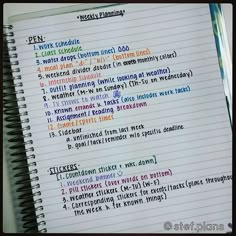 *Weekly Planning*
PEN:
1. work schedule
2. class schedule
3. water drops (bottom lines)
4. meal plan "d:" / "w/s:" (bottom lines)
5. weekend divider doodle (in month monthly colors)
6. internship schedule
7. outfit planning (while looking at weather)
8. weather (M-W on Sunday) (Th-Su on Wednesday)
9. TV shows to watch
10. Known errands & tasks (also includes work tasks)
11. Assignment / Reading Breakdown
12. Exams / sports times
13. Sidebar
a. unfinished from last week
b. goal / task / reminder w/o specific deadline
STICKERS:
[1. Countdown sticker & wks. down]
1. Weekend banner
2. Pill stickers (over words on bottom)
3. Weather stickers (M-Tu) (W-F)
4. Corresponding stickers for events/tasks (place throughout
the week for known things)
@stef.plans